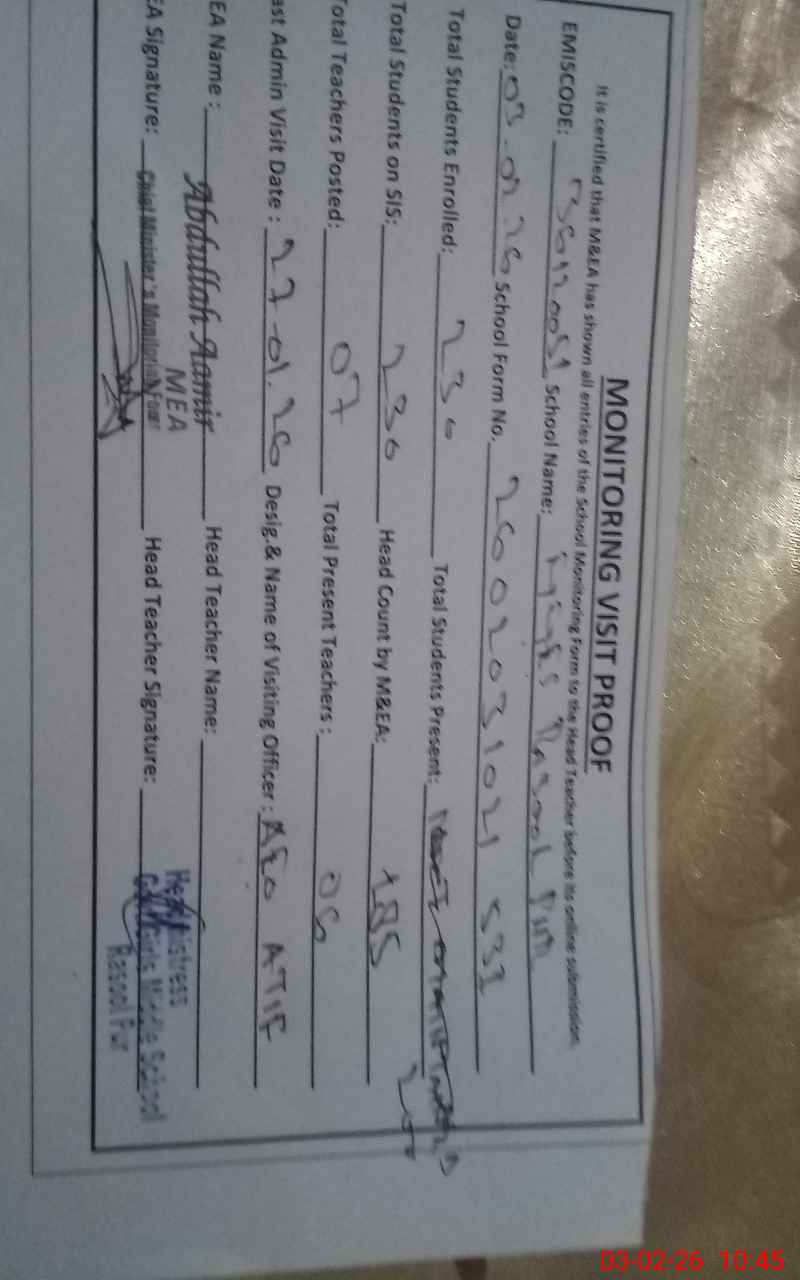 MONITORING VISIT PROOF
It is certified that M&EA has shown all entries of the School Monitoring Form to the Head Teacher before its online submission.
EMISCODE: School Name: Rasool Pur
Date: 03-02.26 School Form No. 2602031021 532
Total Students Enrolled: 230 Total Students Present:
Total Students on SIS: 230 Head Count by M&EA: 185
Total Teachers Posted: 07 Total Present Teachers : 06
ast Admin Visit Date : 27-01.26 Desig.& Name of Visiting Officer : AEO ATIF
EA Name : Abdullah Aamir Head Teacher Name:
MEA
EA Signature: Chief Minister's Monitoring Force Head Teacher Signature:
Headmistress
Govt Girls Middle School
Rasool Pur
03-02-26 10:45